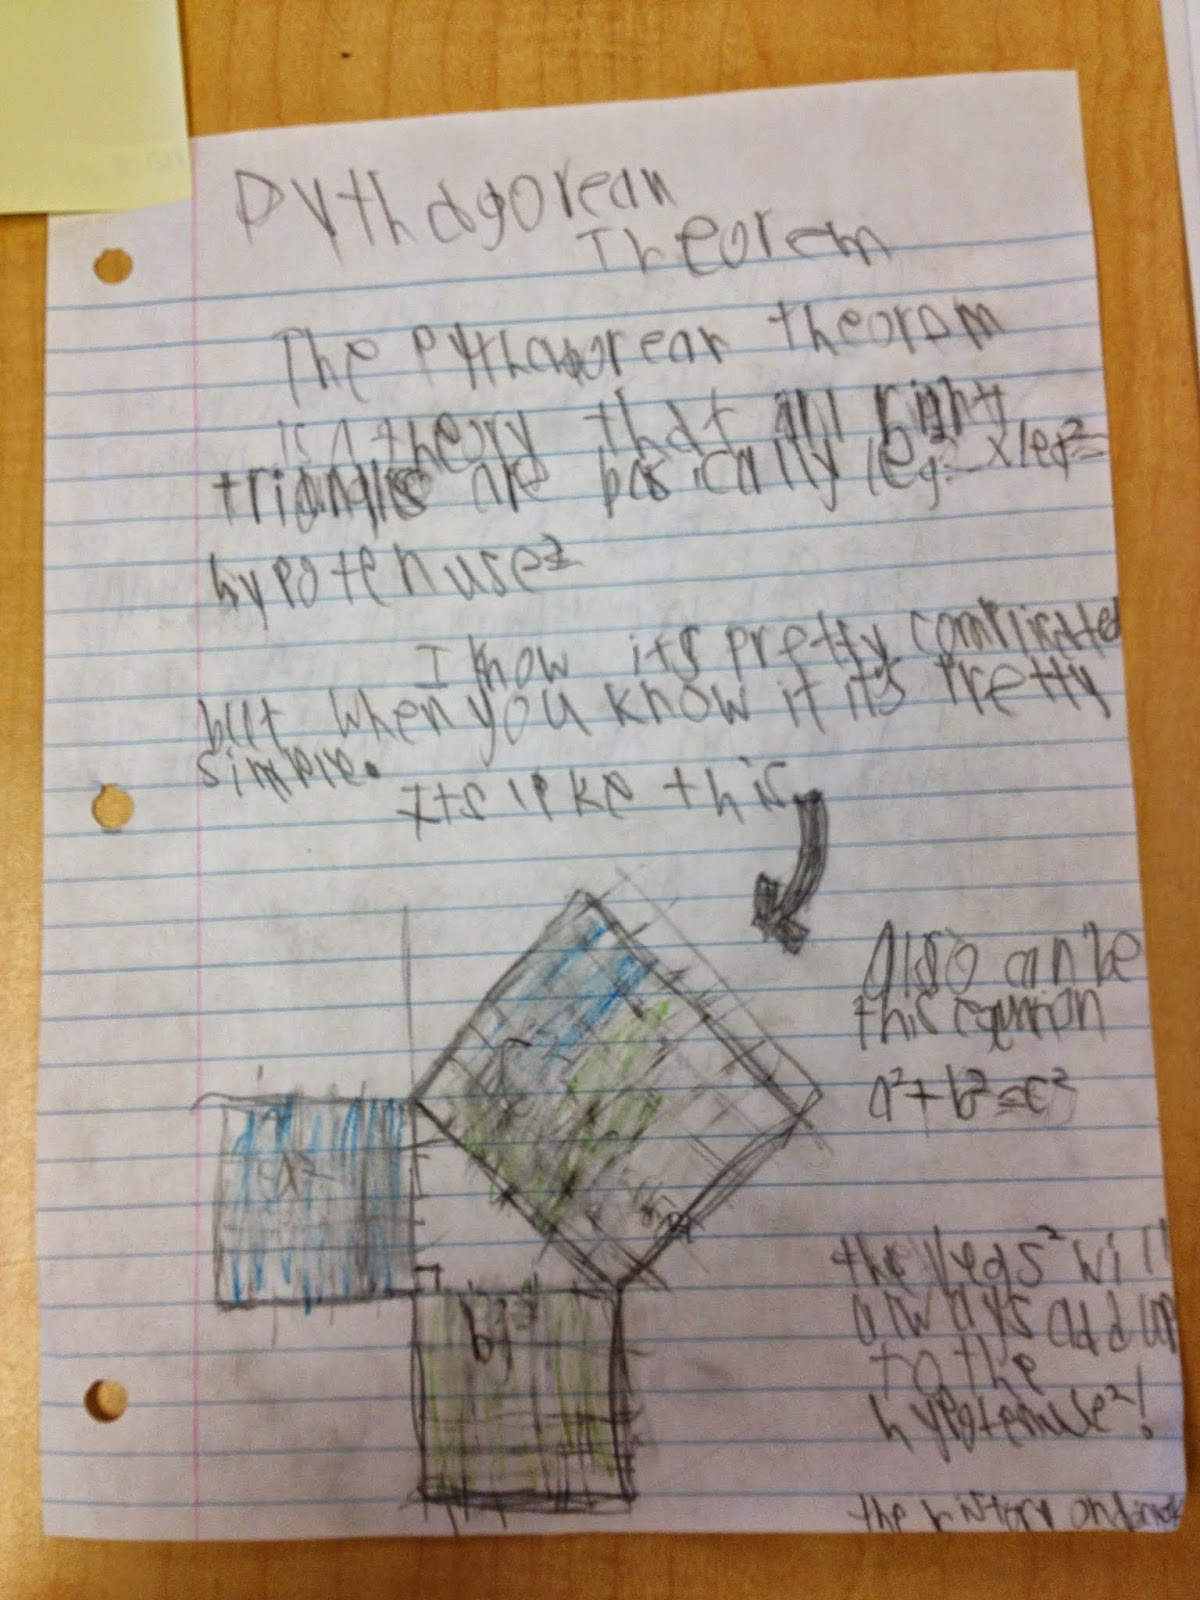 Pythagorean
Theorem
The Pythagorean theorem
is a theory that all right
triangles are basically leg² x leg² =
hypotenuse²
I know its pretty complicated
but when you know it it's pretty
simple.
Its like this
Also can be
this equation
a² + b² = c²
a²
b²
the legs² will
always add up
to the
hypotenuse²!
the history on back